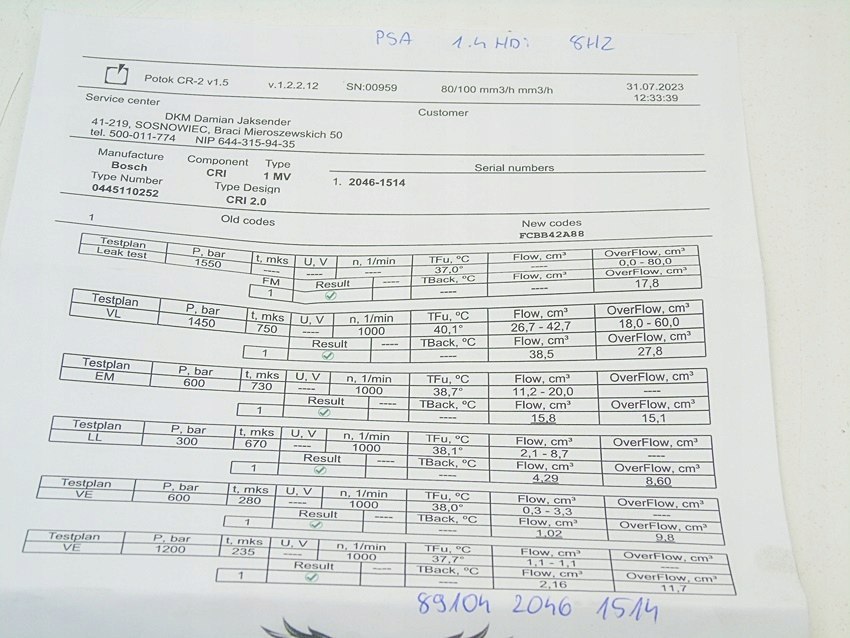 PSA 1.4 HDi 8HZ
Potok CR-2 v1.5 v.1.2.2.12 SN:00959 80/100 mm3/h mm3/h 31.07.2023
12:33:39
Service center Customer
DKM Damian Jaksender
41-219, SOSNOWIEC, Braci Mieroszewskich 50
tel. 500-011-774 NIP 644-315-94-35
Manufacture Component Type Serial numbers
Bosch CRI 1 MV 1. 2046-1514
Type Number Type Design
0445110252 CRI 2.0
1 Old codes New codes
FCBB42A88
Testplan P, bar t, mks U, V n, 1/min TFu, ºC Flow, cm³ OverFlow, cm³
Leak test 1550 ---- ---- ---- 37,0° ---- 0,0 - 80,0
FM Result ---- TBack, ºC Flow, cm³ OverFlow, cm³
1 ---- ---- 17,8
Testplan P, bar t, mks U, V n, 1/min TFu, ºC Flow, cm³ OverFlow, cm³
VL 1450 750 ---- 1000 40,1° 26,7 - 42,7 18,0 - 60,0
Result ---- TBack, ºC Flow, cm³ OverFlow, cm³
1 ---- 38,5 27,8
Testplan P, bar t, mks U, V n, 1/min TFu, ºC Flow, cm³ OverFlow, cm³
EM 600 730 ---- 1000 38,7° 11,2 - 20,0 ----
Result ---- TBack, ºC Flow, cm³ OverFlow, cm³
1 ---- 15,8 15,1
Testplan P, bar t, mks U, V n, 1/min TFu, ºC Flow, cm³ OverFlow, cm³
LL 300 670 ---- 1000 38,1° 2,1 - 8,7 ----
Result ---- TBack, ºC Flow, cm³ OverFlow, cm³
1 ---- 4,29 8,60
Testplan P, bar t, mks U, V n, 1/min TFu, ºC Flow, cm³ OverFlow, cm³
VE 600 280 ---- 1000 38,0° 0,3 - 3,3 ----
Result ---- TBack, ºC Flow, cm³ OverFlow, cm³
1 ---- 1,02 9,8
Testplan P, bar t, mks U, V n, 1/min TFu, ºC Flow, cm³ OverFlow, cm³
VE 1200 235 ---- 1000 37,7° 1,1 - 1,1 ----
Result ---- TBack, ºC Flow, cm³ OverFlow, cm³
1 ---- 2,16 11,7
89104 2046 1514